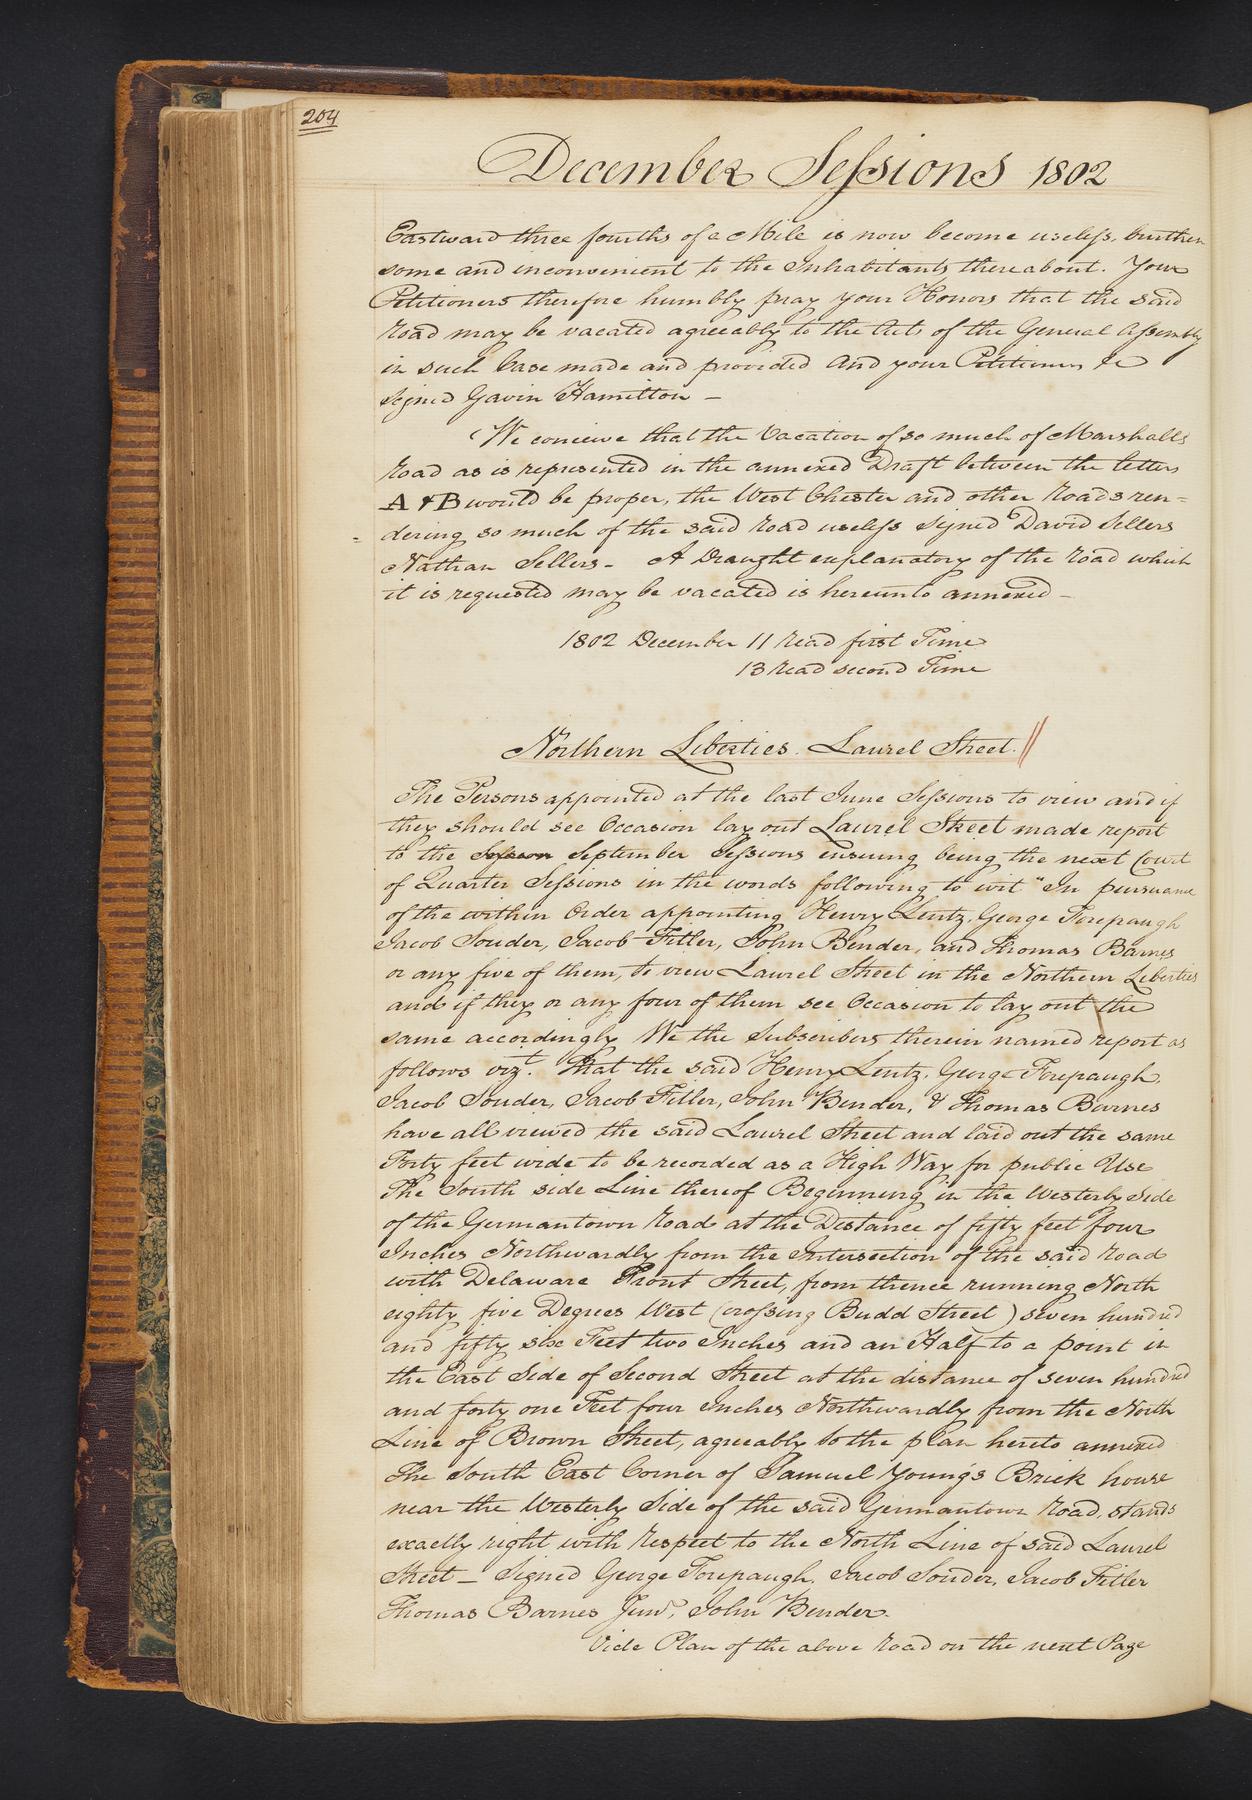 204
December Sessions 1802
Eastward three fourths of a Mile is now become useless, burthen
some and inconvenient to the Inhabitants thereabout. Your
Petitioners therefore humbly pray your Honors that the said
Road may be vacated agreeably to the Act of the General Assembly
in such Case made and provided And your Petitioners &c
Signed Gavin Hamilton —
We conceive that the Vacation of so much of Marshalls
Road as is represented in the annexed Draft between the letters
A & B would be proper, the West Chester and other Roads ren=
dering so much of the said road useless Signed David Sellers
Nathan Sellers - A Draught explanatory of the Road which
it is requested may be vacated is hereunto annexed —
1802 December 11 read first Time
13 read second Time
Northern Liberties. Laurel Street. //
The Persons appointed at the last June Sessions to view and if
they should see Occasion lay out Laurel Street made report
to the September Sessions ensuing being the next Court
of Quarter Sessions in the words following to wit "In pursuance
of the within Order appointing Henry Lentz, George Forepaugh
Jacob Souder, Jacob Fitler, John Bender, and Thomas Barnes
or any five of them, to view Laurel Street in the Northern Liberties
and if they or any four of them see Occasion to lay out the
same accordingly We the Subscribers therein named report as
follows vizt. That the said Henry Lentz, George Forepaugh,
Jacob Souder, Jacob Fitler, John Bender, & Thomas Barnes
have all viewed the said Laurel Street and laid out the same
Forty feet wide to be recorded as a High Way for public Use
The South side Line thereof Beginning in the Westerly Side
of the Germantown Road at the Distance of fifty feet four
Inches Northwardly from the Intersection of the said Road
with Delaware Front Street, from thence running North
eighty five Degrees West (crossing Budd Street) seven hundred
and fifty six Feet two Inches and an Half to a point in
the East Side of Second Street at the distance of seven hundred
and forty one Feet four Inches Northwardly from the North
Line of Brown Street, agreeably to the plan hereto annexed
The South East Corner of Samuel Young's Brick house
near the Westerly Side of the said Germantown Road, stands
exactly right with Respect to the North Line of said Laurel
Street — Signed George Forepaugh, Jacob Souder, Jacob Fitler
Thomas Barnes Junr, John Bender.
Vide Plan of the above Road on the next Page